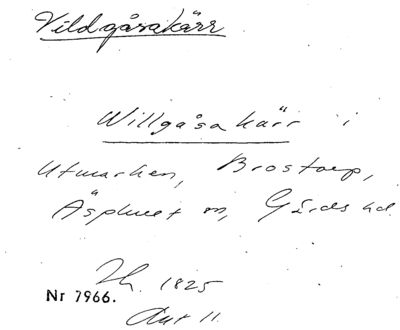 Vildgåsakärr
Willgåsakärr i
Utmarken, Brostorp,
Äsphuet m, Gärds hd.
Th. 1825
Nr 7966.
Akt 11.